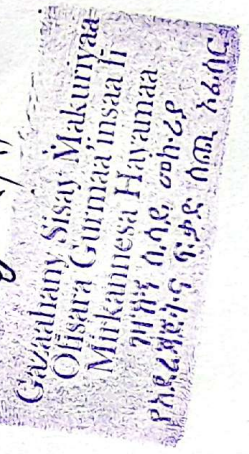 Gazaahany Sisay Makuriyaa
Ofisara Gurmaa'insaa fi
Mirkannesa Hayamaa
ገዛኸኝ ሲሳይ መኩሪያ
የአደረጃጀትና ፍቃድ ሰጪ ኦፊሰር